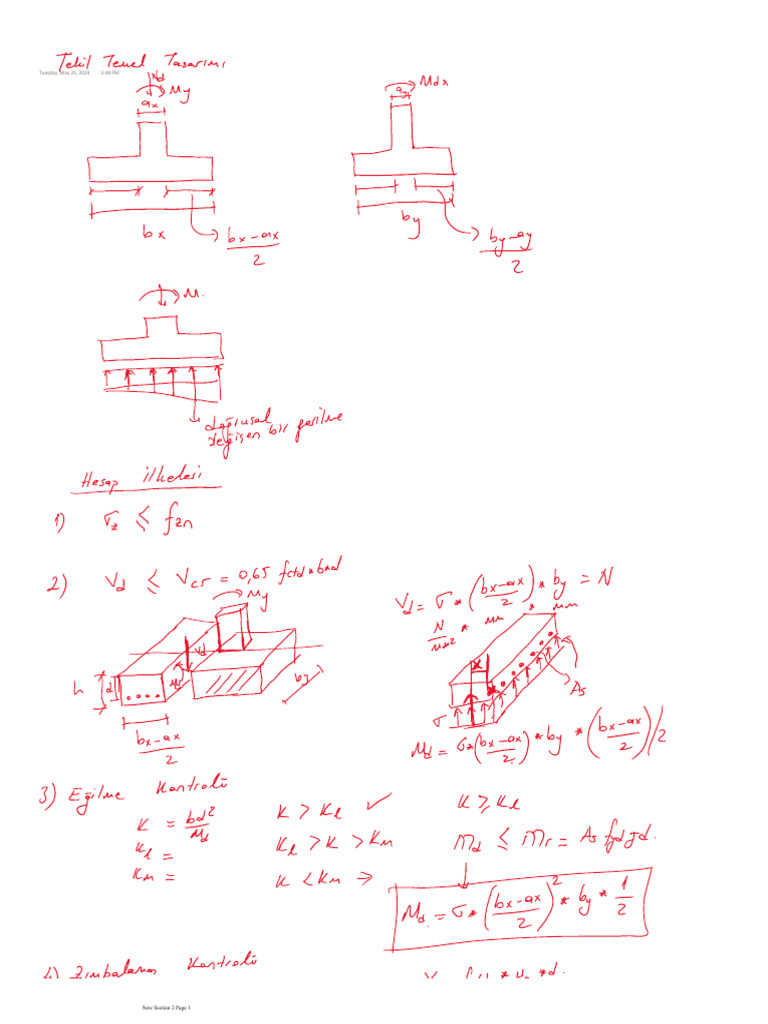 Tekil Temel Tasarımı
Tuesday, May 21, 2024 3:48 PM
My
ax
Mdx
ay
bx
bx-ax/2
by
by-ay/2
M.
doğrusal
değişen bir gerilme
Hesap ilkeleri
1) σz ≤ fzn
2) Vd ≤ Vcr = 0,65 fctd*b*d
My
Vd = σ * (bx-ax/2) * by = N
N/mm2 * mm * mm
Vd
h
d
by
bx-ax/2
As
σ
Md = σ*(bx-ax/2)*by*(bx-ax/2)/2
3) Eğilme Kontrolü
K = bd²/Md
Kl =
Km =
K > Kl ✓
Kl > K > Km
K < Km →
K ≥ Kl
Md ≤ Mr = As fyd jd.
Md. = σ*(bx-ax/2)² * by * 1/2
4) Zımbalama Kontrolü
*d.
New Section 2 Page 1